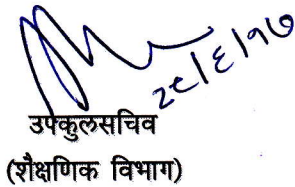 २९/६/१७
उपकुलसचिव
(शैक्षणिक विभाग)